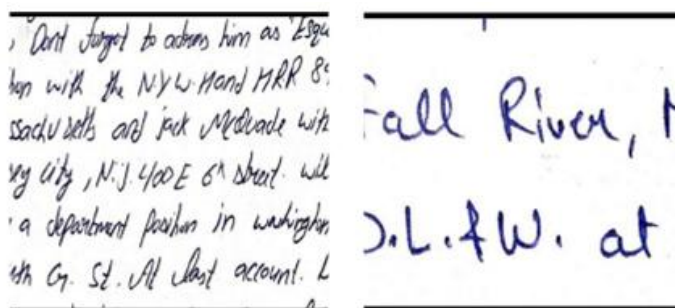 , Dont forget to adress him as "Esqu
with the N.Y.W. Hand HRR 89
ssachusetts and jack McQuade with
ey city, N.J. 400 E 6th street. wil
a department position in washington
G. St. At last account. L
Fall River, M
D.L.&W. at